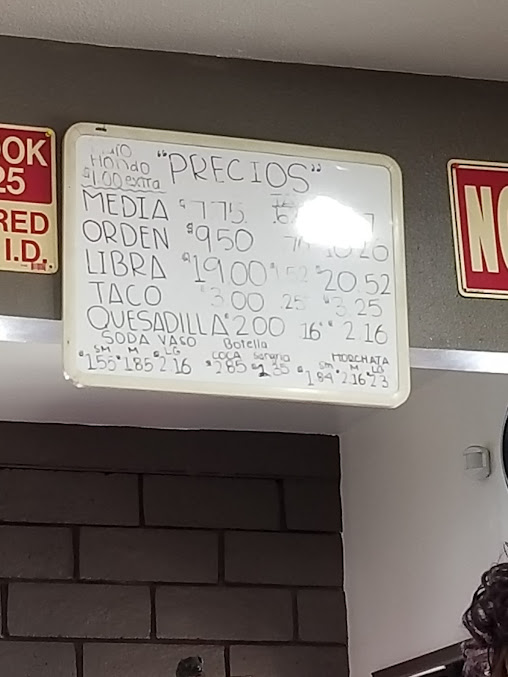 OOK
25
RED
I.D.
Hondo
$1.00 extra
"PRECIOS"
MEDIA $7.75
ORDEN $9.50 10.26
LIBRA $19.00 $1.52 $20.52
TACO $3.00 .25 $3.25
QUESADILLA $2.00 16¢ $2.16
SODA VASO Botella HORCHATA
SM M LG COCA Sangria SM M LG
$1.55 $1.85 $2.16 $2.85 $2.35 $1.84 $2.16 $2.3
NO